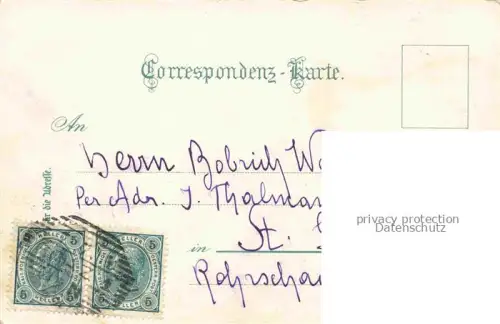 Correspondenz-Karte.
An
Herrn Bobrich
Per Adr. J. Thalman
in St.
Rohrscha
die Adresse.
privacy protection
Datenschutz
5 5 5 5
HELLER HELLER